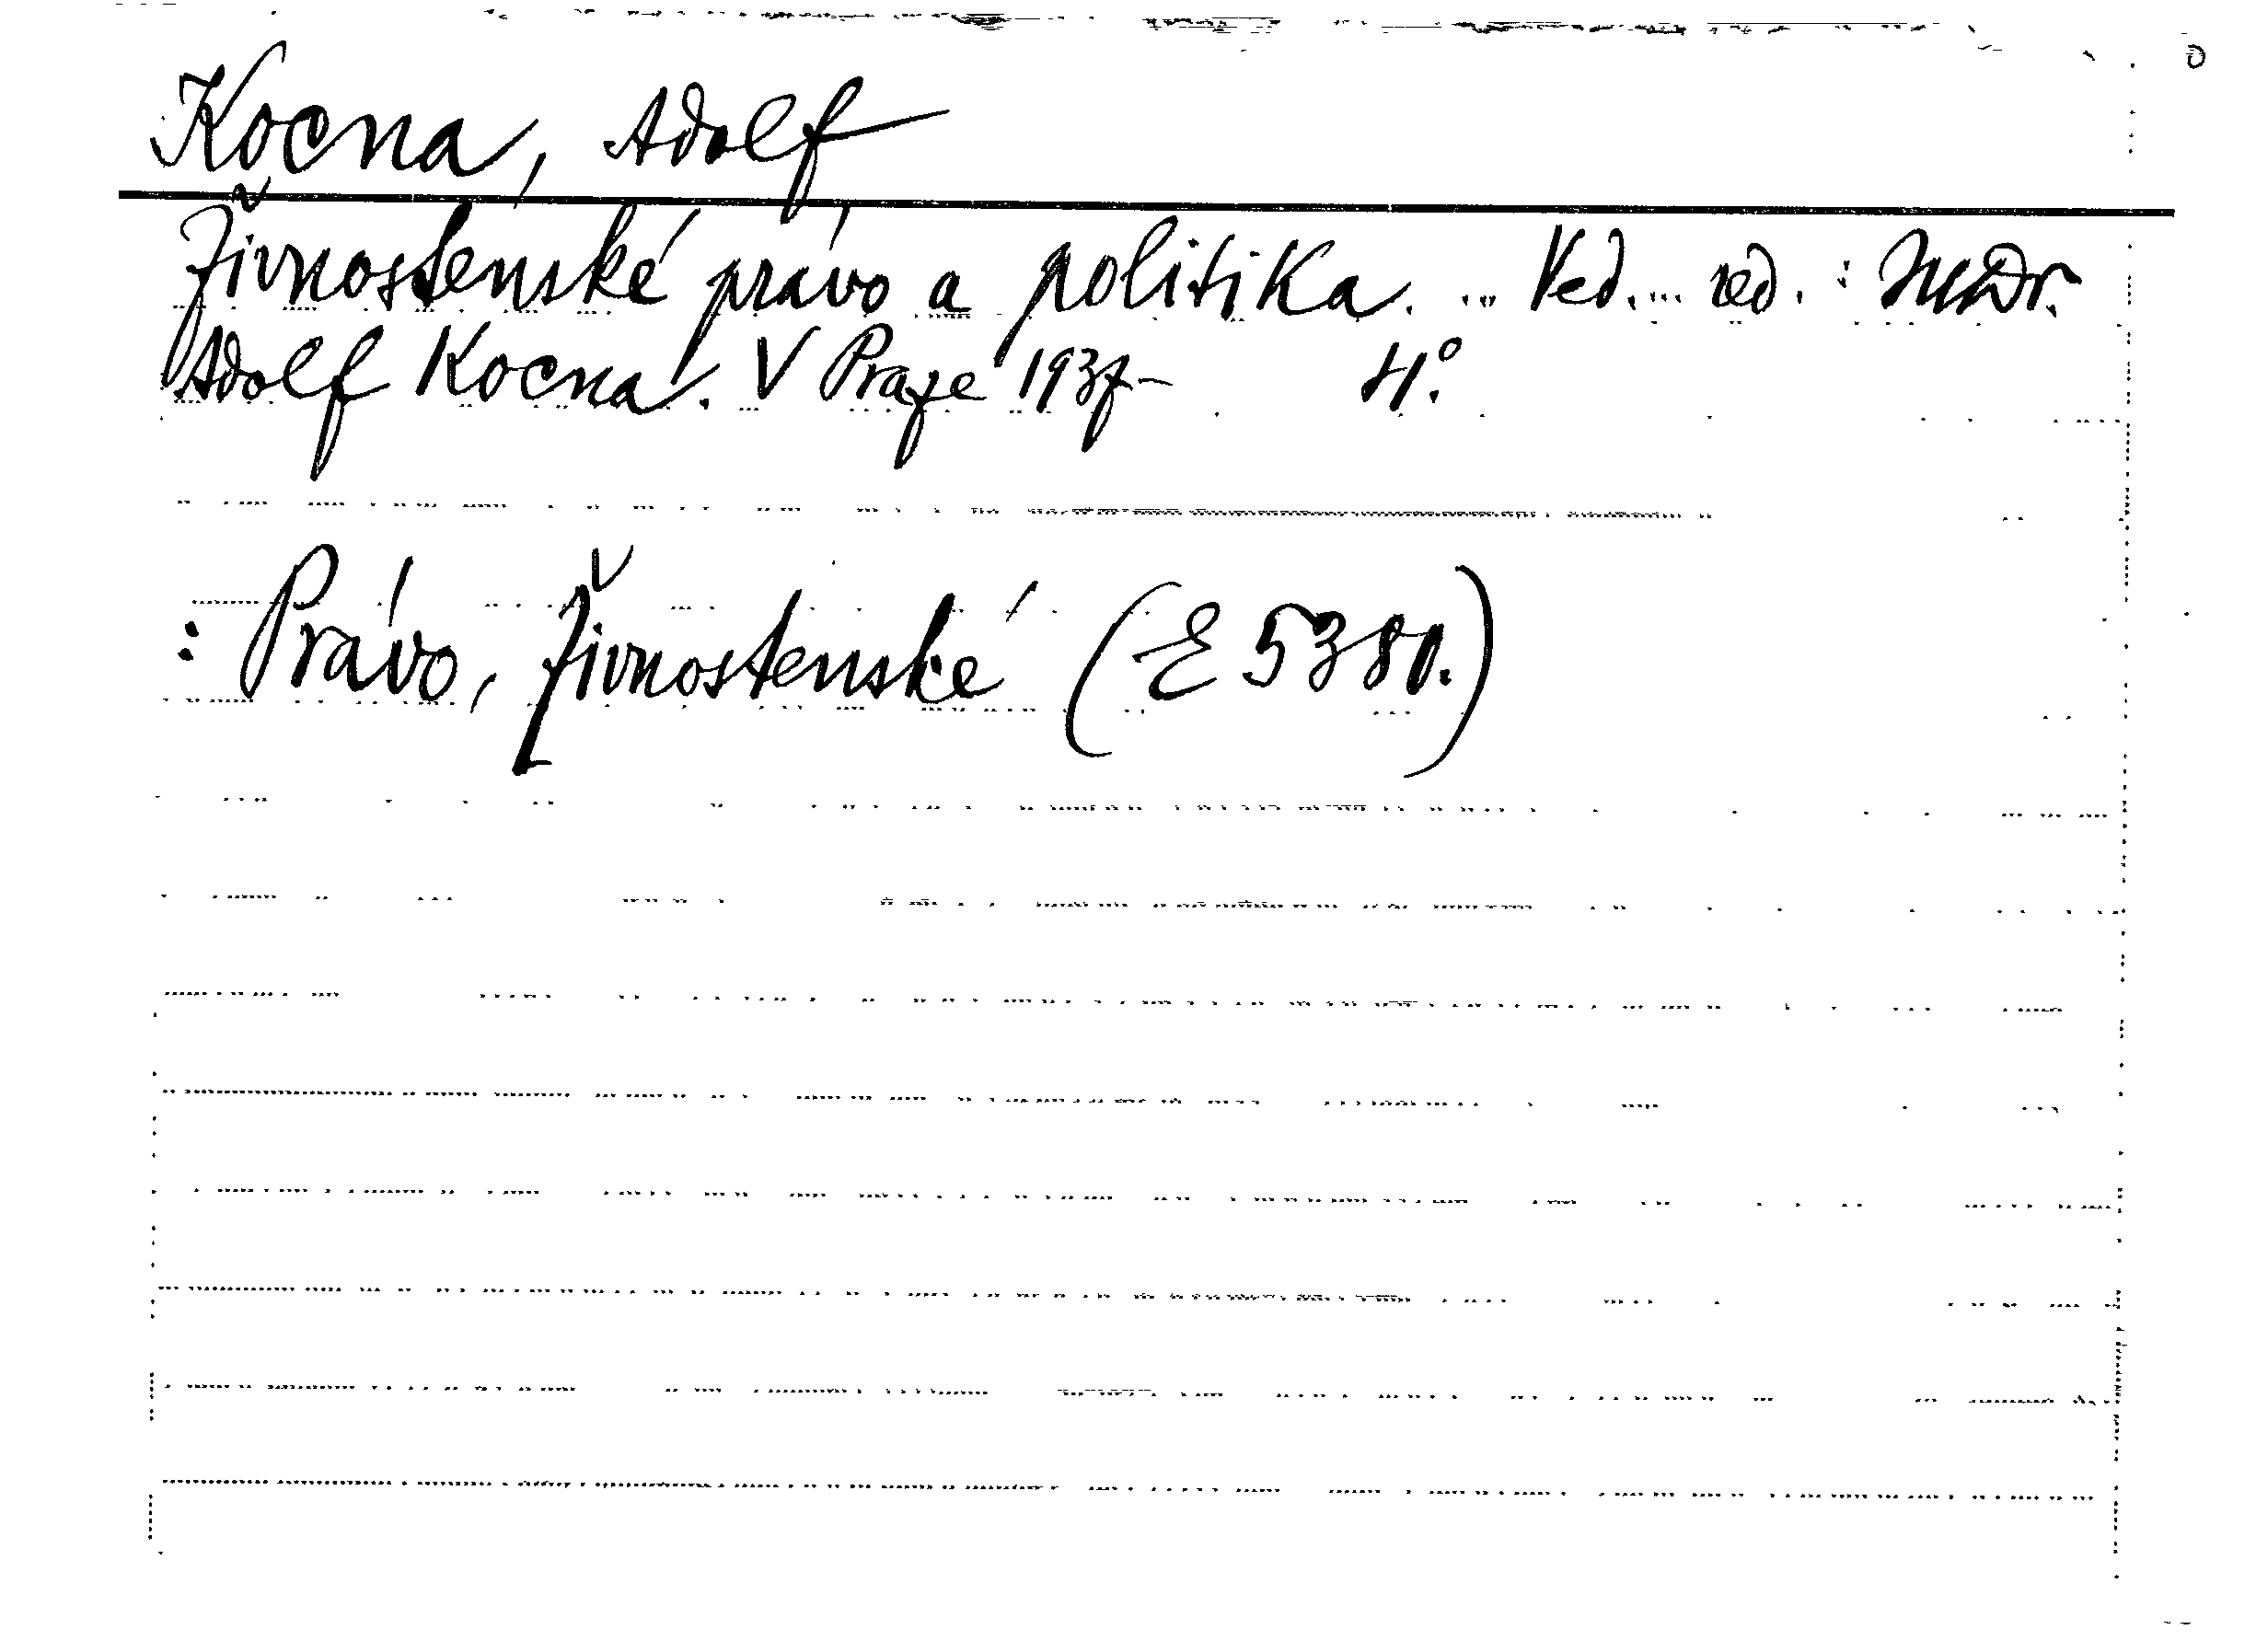 Kocna, Adolf
Živnostenské právo a politika. ... Ved. ... red. : JUDr.
Adolf Kocna. V Praze 1937- 4°.
: Právo, živnostenské (E 5380.)